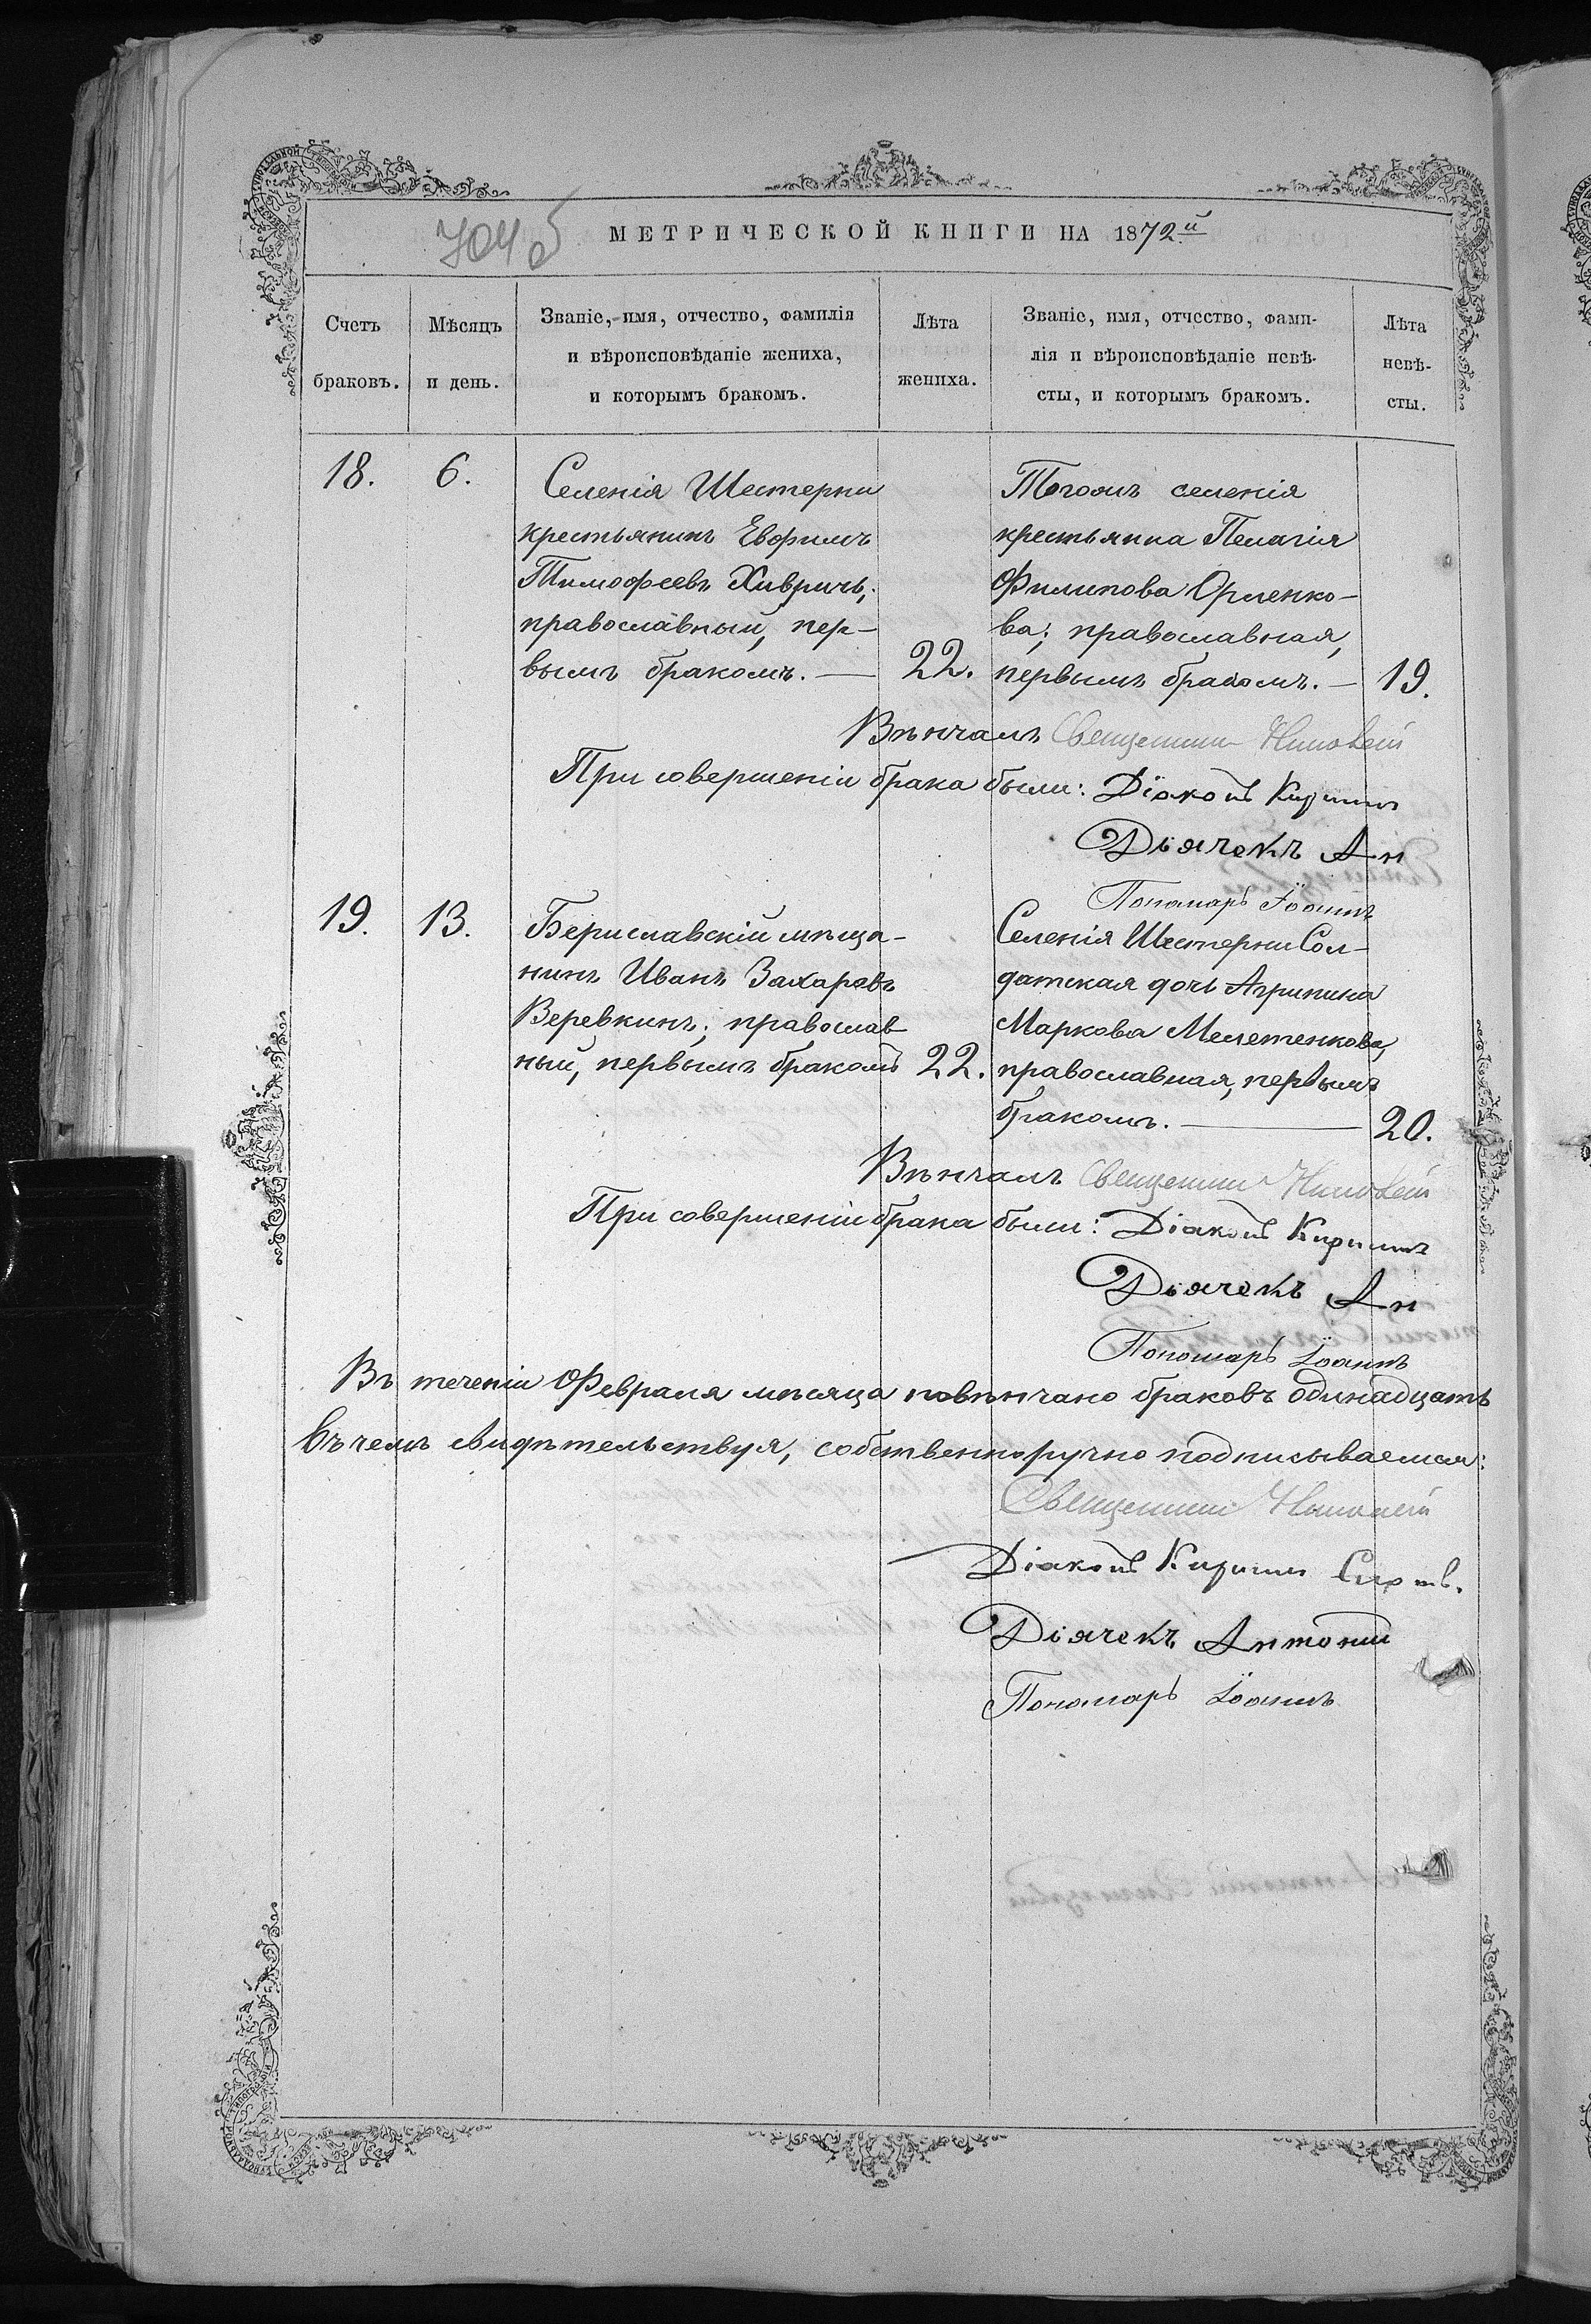 704 б
МЕТРИЧЕСКОЙ КНИГИ НА 1872й
Счетъ браковъ.
Мѣсяцъ и день.
Званіе, имя, отчество, фамилія
и вѣроисповѣданіе жениха,
и которымъ бракомъ.
Лѣта жениха.
Званіе, имя, отчество, фами-
лія и вѣроисповѣданіе невѣ-
сты, и которымъ бракомъ.
Лѣта невѣ-
сты.
18.
6.
Селенія Шестерни
крестьянинъ Евфимъ
Тимофеевъ Хивричъ;
православный, пер-
вымъ бракомъ. —
22.
Тогожъ селенія
крестьянка Пелагія
Филипова Орленко-
ва; православная,
первымъ бракомъ. —
19.
Вѣнчалъ Священникъ Николай
При совершеніи брака были: Діаконъ Кирилъ
Дьячекъ Ан
Пономарь Іоаннъ
19.
13.
Бериславскій мѣща-
нинъ Иванъ Захаровъ
Веревкинъ; православ
ный, первымъ бракомъ
22.
Селенія Шестерни Сол-
датская дочь Агрипина
Маркова Мелетенкова,
православная, первымъ
бракомъ. —
20.
Вѣнчалъ Священникъ Николай
При совершеніи брака были: Діаконъ Кирилъ
Дьячекъ Ан
Пономарь Іоаннъ
Въ теченіи Февраля мѣсяца повѣнчано браковъ одинадцать
въ чемъ свидѣтельствуя, собственноручно подписываемся:
Священникъ Николай
Діаконъ Кирилъ
Діячекъ Антоній
Пономарь Іоаннъ